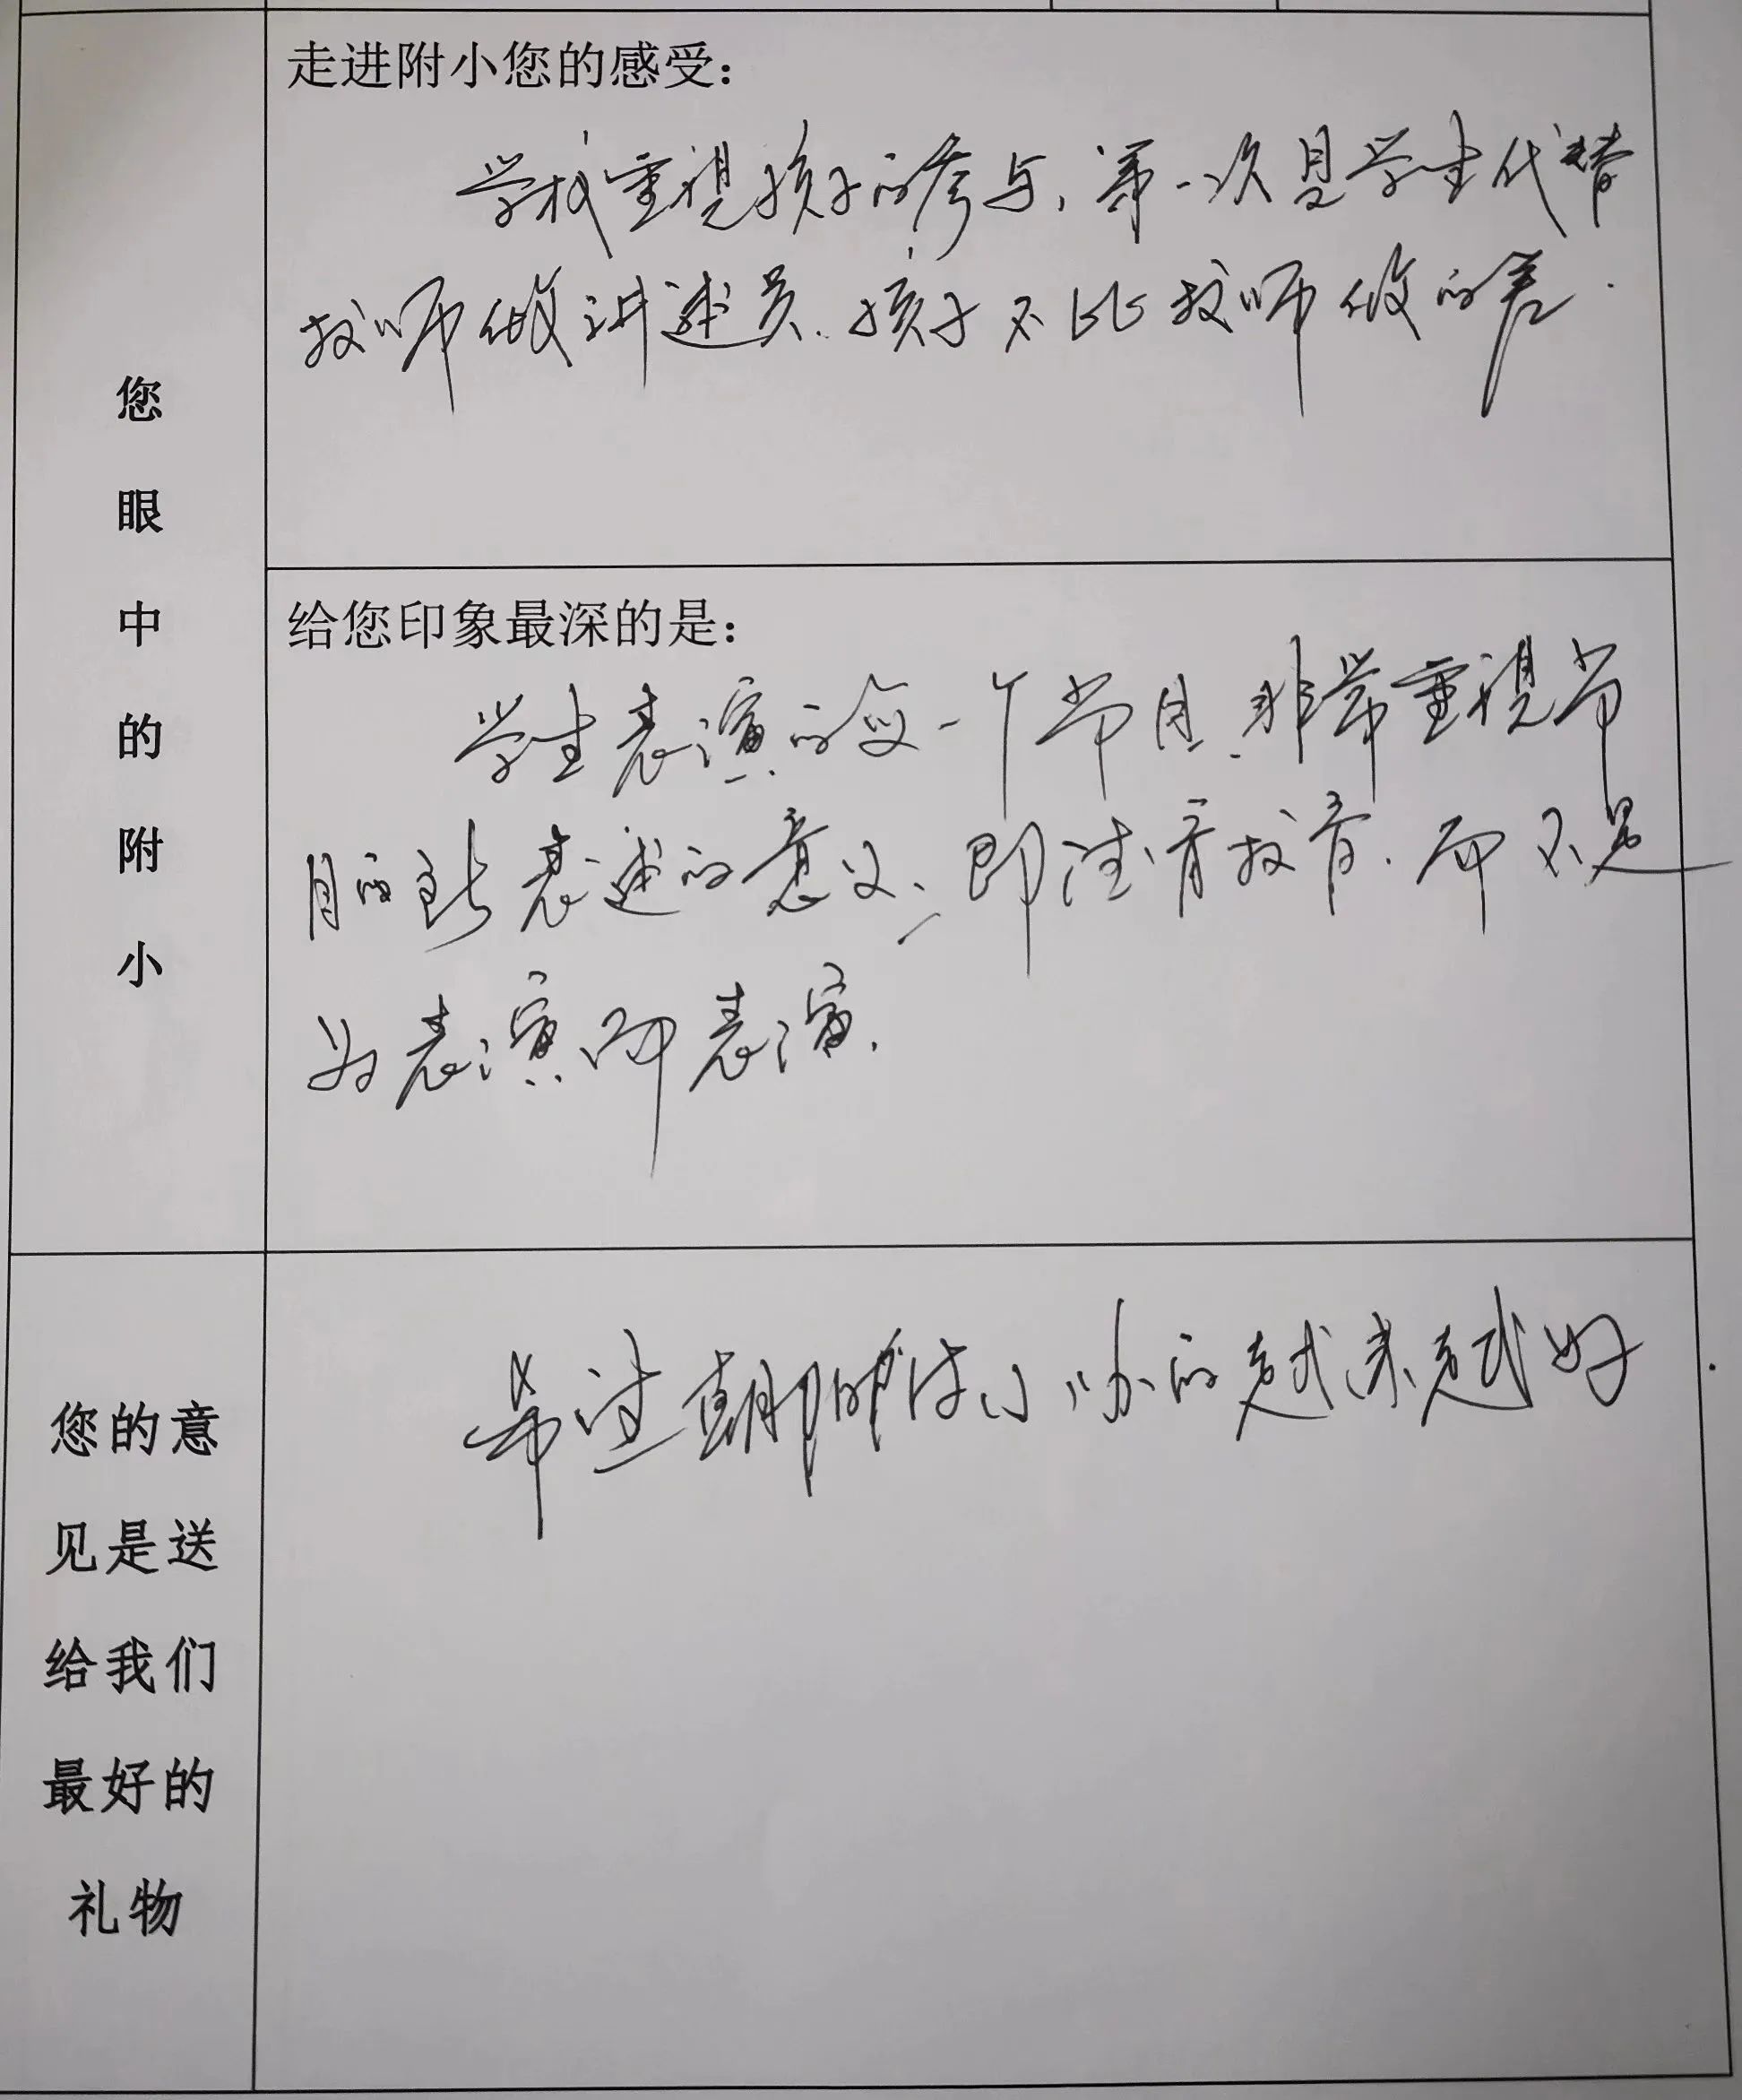 您眼中的附小
走进附小您的感受：
学校重视孩子的参与，第一次见学生代替
教师做讲述员，孩子不比教师做的差．
给您印象最深的是：
学生表演的每一个节目，非常重视节
目所表述的意义，即德育教育，而不是
为表演而表演．
您的意
见是送
给我们
最好的
礼物
希望朝阳附小办的越来越好．